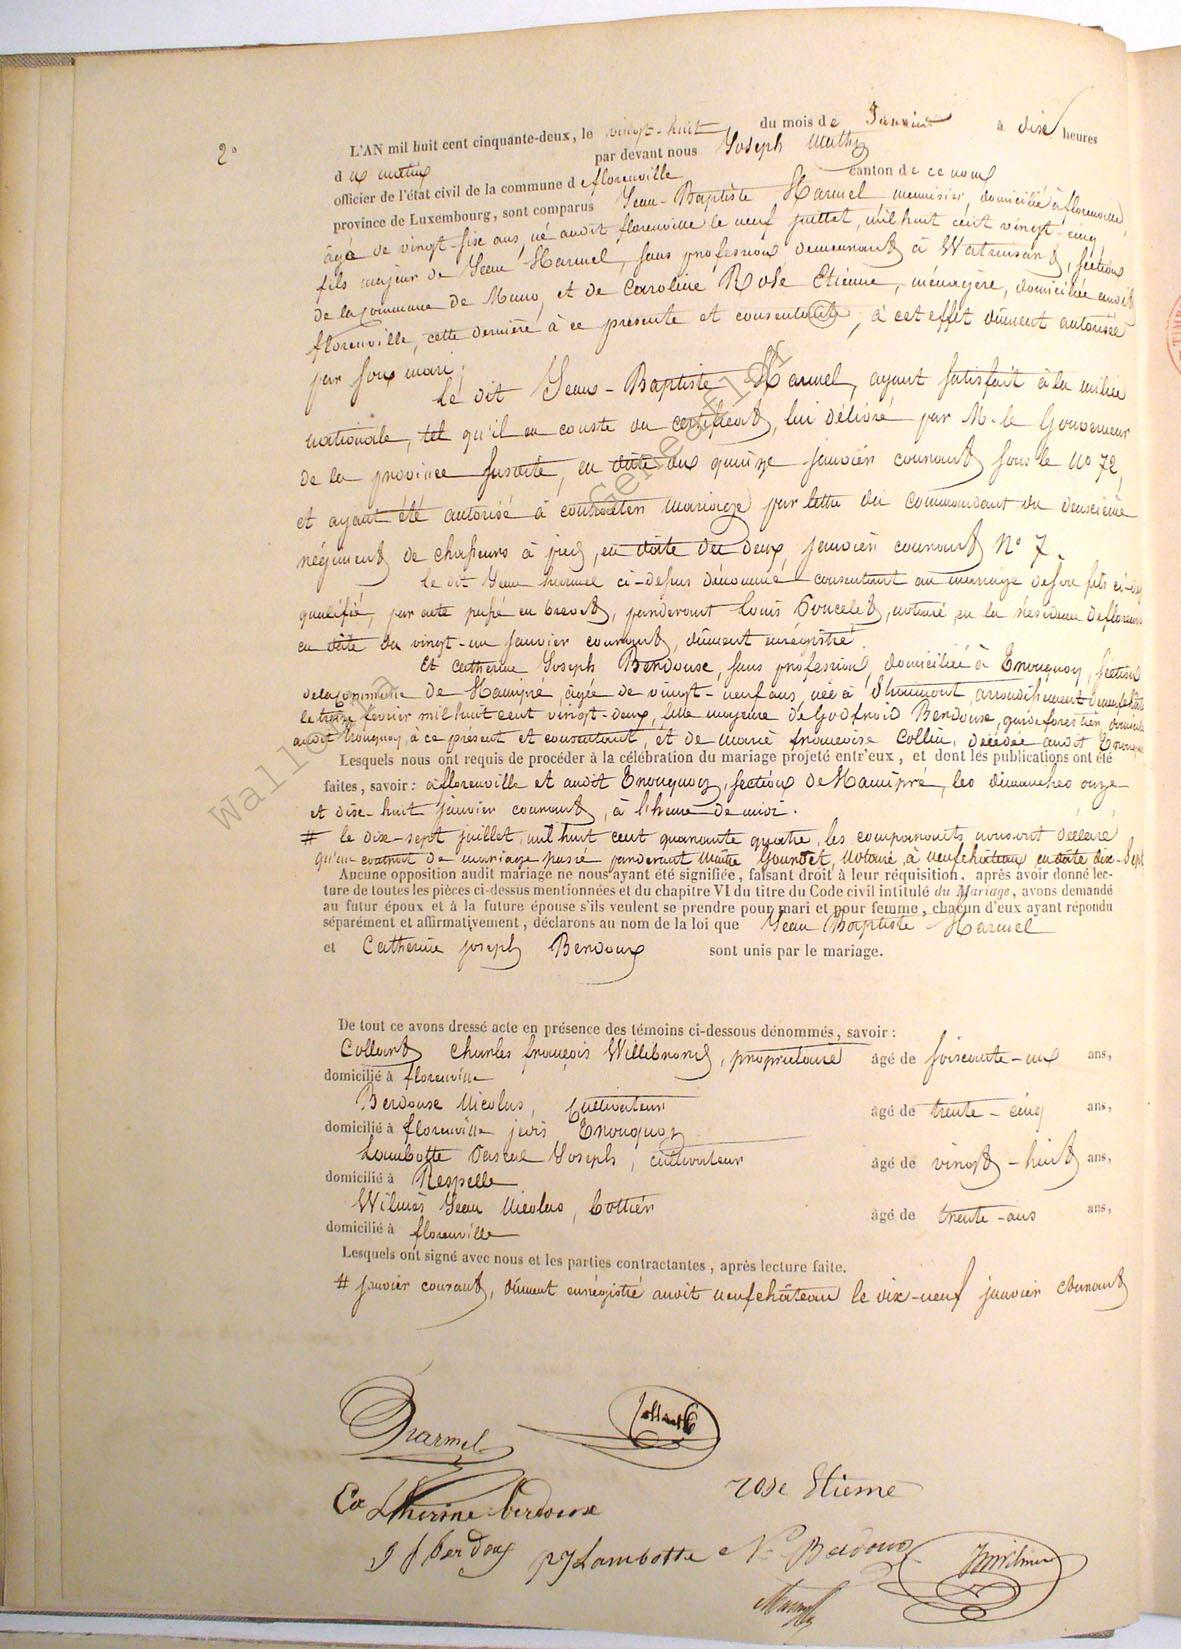 2°
L'AN mil huit cent cinquante-deux, le vingt-huit du mois de Janvier à dix heures
d u matin par devant nous Joseph Mathy
officier de l'état civil de la commune de florenville canton de ce nom
province de Luxembourg, sont comparus Jean-Baptiste Harmel menuisier, domicilié à florenville,
âgé de vingt-six ans, né audit florenville le neuf juillet, mil huit cent vingt-cinq,
fils majeur de Jean Harmel, sans profession demeurant à Watrinsart, section
de la Commune de Muno, et de Caroline Rose Etienne, ménagère, domiciliée audit
florenville, cette dernière à ce présente et consentante, à cet effet dûment autorisée
par son mari;
Le dit Jean-Baptiste Harmel, ayant satisfait à la milice
nationale, tel qu'il en conste du certificat, lui délivré par M. le Gouverneur
de la province susdite, en date du quinze janvier courant sous le No 72,
et ayant été autorisé à contracter mariage par lettre du commandant du deuxième
régiment de chasseurs à pied, en date du deux janvier courant N° 7.
Le dit Jean harmel ci-dessus dénommé consentant au mariage de son fils ci-dess
qualifié, par acte passé en brevet, pardevant Louis Poncelet, notaire, en la résidence de florenville
en date du vingt-un janvier courant, dûment enrégistré.
Et Catherine Joseph Berdouxe, sans profession, domiciliée à Enouquoy, section
de la Commune de Hamipré, âgée de vingt-neuf ans, née à Straimont, arrondissement de neufchâteau
le treize février mil huit cent vingt-deux, fille majeure de Godfroid Berdouxe, garde forestier, domicilié
audit Enouquoy, à ce présent et consentant, et de marie françoise Collin, décédée audit Enouquoy
Lesquels nous ont requis de procéder à la célébration du mariage projeté entr'eux, et dont les publications ont été
faites, savoir: à florenville et audit Enouquoy, section de Hamipré, les dimanches onze
et dix-huit janvier courant, à l'heure de midi.
# le dix-sept juillet, mil huit cent quarante quatre, les comparants nous ont déclaré
qu'un contrat de mariage passé pardevant maître Gourdet, Notaire, à neufchâteau en date dix-sept
Aucune opposition audit mariage ne nous ayant été signifiée, faisant droit à leur réquisition, après avoir donné lec-
ture de toutes les pièces ci-dessus mentionnées et du chapitre VI du titre du Code civil intitulé du Mariage, avons demandé
au futur époux et à la future épouse s'ils veulent se prendre pour mari et pour femme, chacun d'eux ayant répondu
séparément et affirmativement, déclarons au nom de la loi que Jean Baptiste Harmel
et Catherine Joseph Berdoux sont unis par le mariage.
De tout ce avons dressé acte en présence des témoins ci-dessous dénommés, savoir:
Collard Charles françois Willebrord, propriétaire âgé de soixante-un ans,
domicilié à florenville
Berdouxe Nicolas, Cultivateur âgé de trente-cinq ans,
domicilié à florenville jadis Enouquoy
Lambotte Pascal Joseph, cultivateur âgé de vingt-huit ans,
domicilié à Respelle
Wilmès Jean Nicolas, Bottier âgé de trente-ans ans,
domicilié à florenville
Lesquels ont signé avec nous et les parties contractantes, après lecture faite.
# janvier courant, dûment enrégistré audit neufchâteau le dix-neuf janvier courant
Harmel Collard
Catherine berdouxe rose Etienne
g f berdoux p j Lambotte Ns Berdoux JNWilmes
Mathy